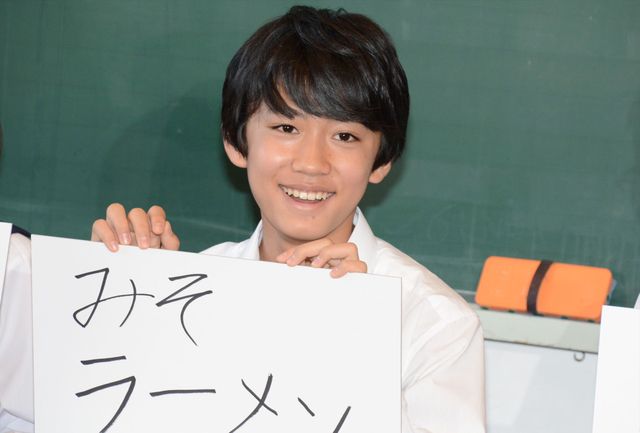 みそ
ラーメン